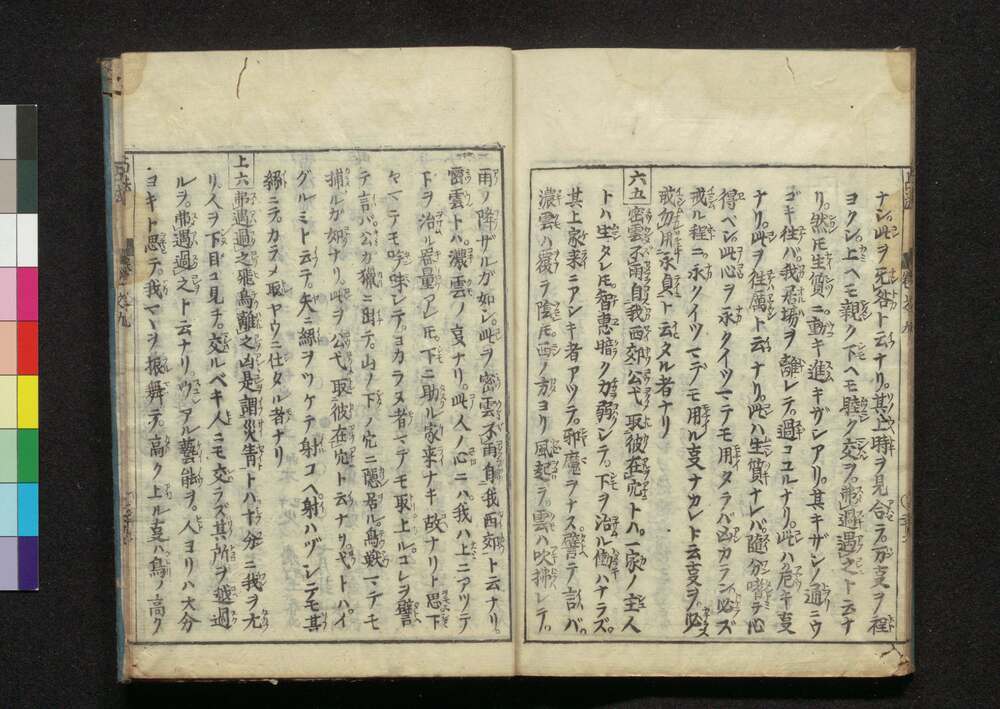 ナシ。此ヲ无咎ト云ナリ。其上時ヲ見合テ。万事ヲ程
ヨクシ。上ヘモ親ク下ヘモ睦ク交ヲ。弗過遇之ト云ナ
リ。然モ生質ニ動キ進キザシアリ。其キザシノ通ニウ
ゴキ往バ。我居場ヲ離レテ。過コユルナリ。此ハ危キ事
ナリ。此ヲ往厲ト云ナリ。此ハ生質ナレバ。随分嗜テ心
得ベシ。此心ヲ永クイツマテモ用タラバ凶カラン。必ズ
戒ル程ニ永クイツマデモ用ル事ナカレト云事ヲ。必
戒勿用永貞ト云タル者ナリ
六五 密雲不雨自我西郊公弋取彼在穴トハ。一家ノ主人
トハ生タレモ。智恵暗ク力弱シテ。下ヲ治ル働ハナラズ。
其上家来ニアシキ者アツテ。邪魔ヲナス。譬テ言バ。
濃雲ハ覆ヲ陰モ。西ノ方ヨリ風起テ。雲ハ吹拂レテ。
雨ノ降ザルガ如シ。此ヲ密雲不雨自我西郊ト云ナリ。
密雲トハ。濃雲ノ事ナリ。此人ノ心ニハ我ハ上ニアツテ
下ヲ治ル器量アレモ。下ニ助ル家来ナキ故ナリト思。下
ヤマテモ吟味シテ。ヨカラヌ者マデモ取上ル。コレヲ譬
テ言バ。公ガ獵ニ出テ。山ノ下ノ穴ニ隠居ル。鳥獣マデモ
捕ルガ如ナリ。此ヲ公弋取彼在穴ト云ナリ。弋トハ。イ
グルミト云テ。矢ニ繳ヲツケテ射コヘ射ハヅシテモ其
繳ニテ。カラメ取ヤウニ仕タル者ナリ
上六 弗遇過之飛鳥離之凶是謂災眚トハ十分ニ我ヲ亢
リ人ヲ下目ニ見テ。交ルベキ人ニモ交ラズ其所ヲ越過
ルヲ。弗遇過之ト云ナリ。ウヘアル藝能ヲ。人ヨリハ大分
ヨキト思テ。我マヽヲ振舞テ。高ク上ル事ハ鳥ノ高ク